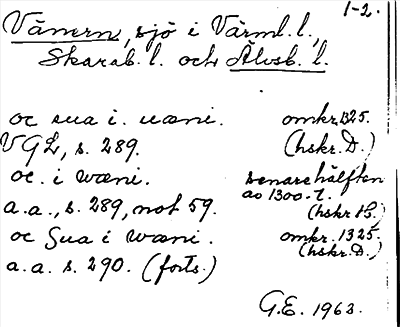 1-2.
Vänern, sjö i Värml. l.,
Skarab. l. och Älvsb. l.
oc sua i. uæni. omkr. 1325.
VGL, s. 289. (hskr. D.)
oc. i wæni. senare hälften
av 1300-t.
a.a., s. 289, not 59. (hskr H.)
oc Sua i wæni. omkr. 1325.
(hskr. D.)
a.a. s. 290. (forts.)
G.E. 1963.